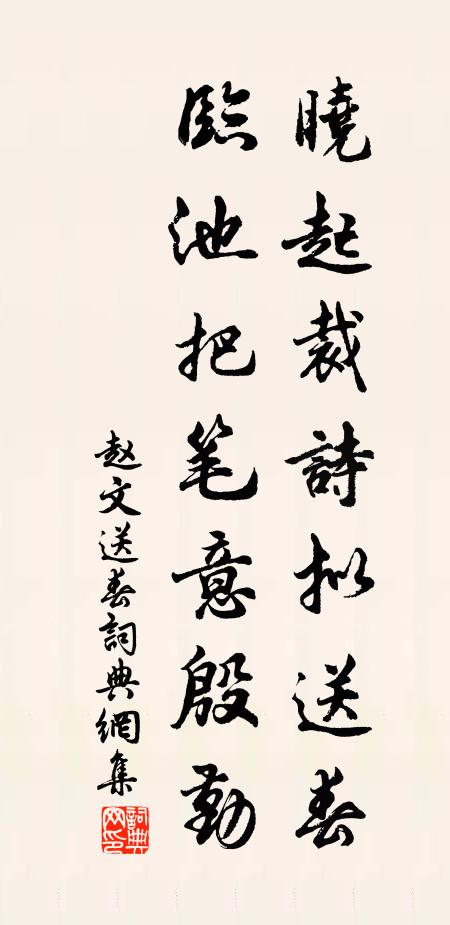 曉起裁詩拟送春
臨池把笔意殷勤
赵文送春詞典網集
詞典网印